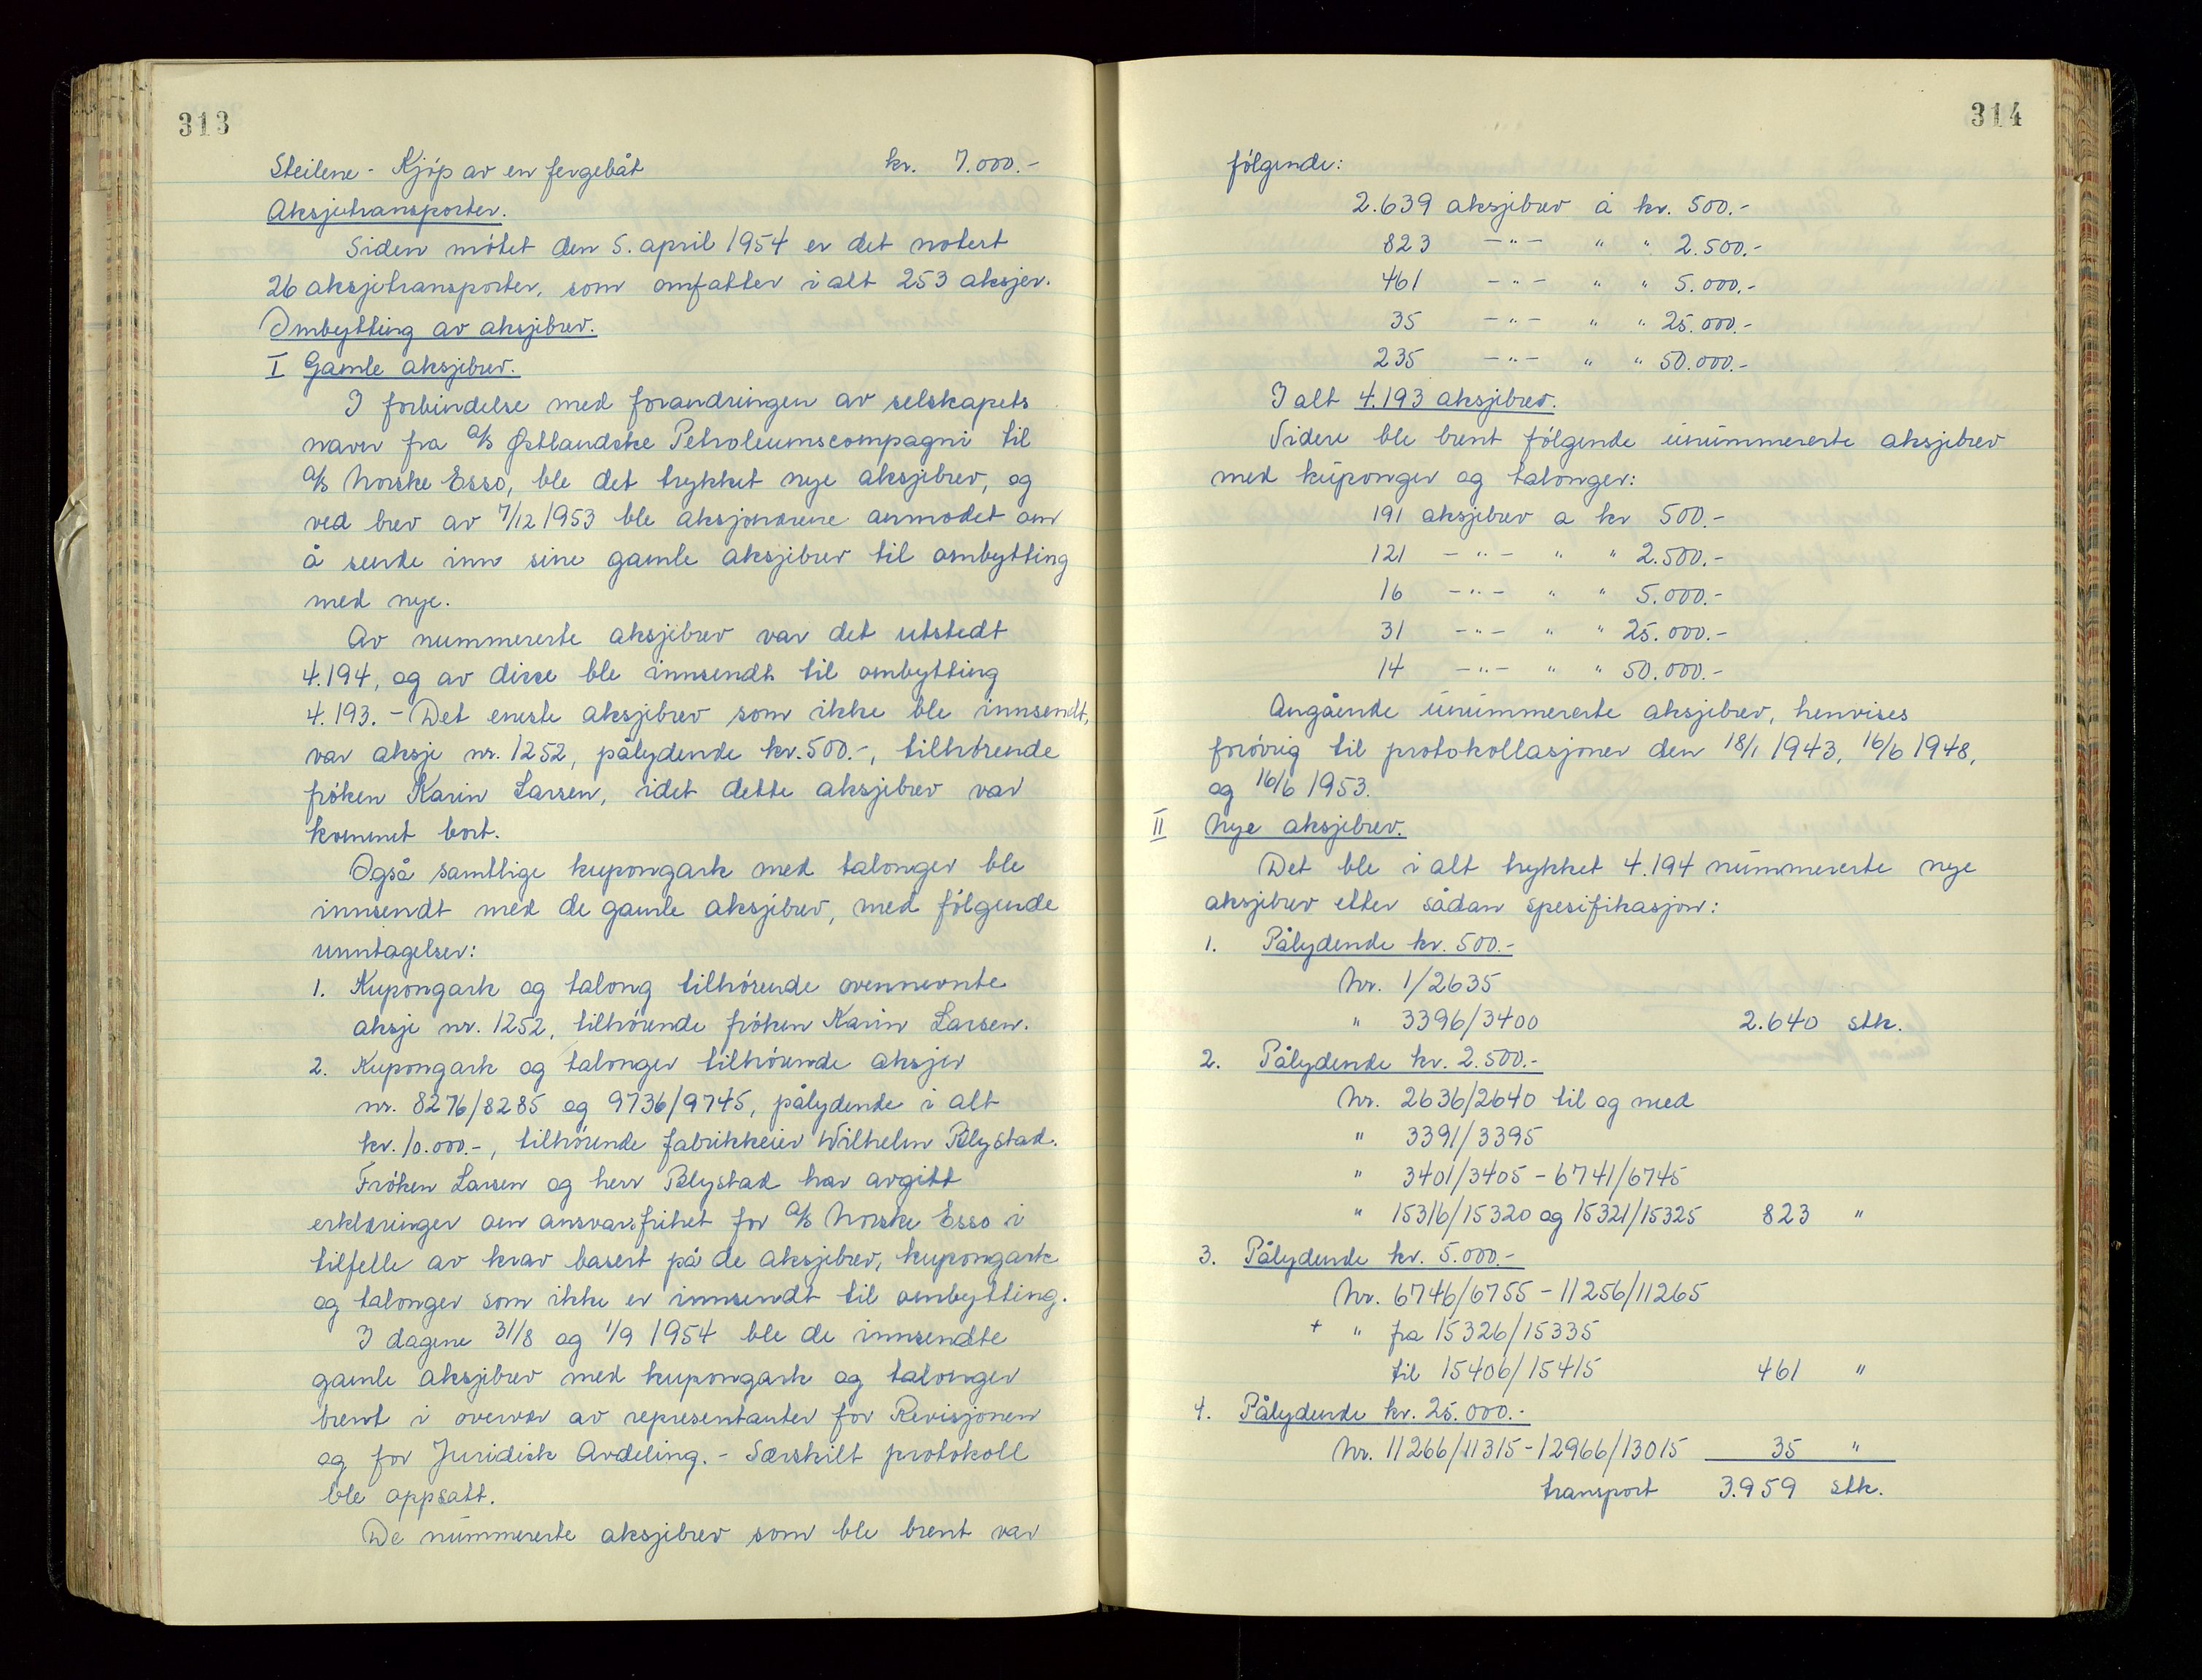 313
Steilene - Kjøp av en fergebåt kr. 7.000.-
Aksjetransporter.
Siden møtet den 5. april 1954 er det notert
26 aksjetransporter, som omfatter i alt 253 aksjer.
Ombytting av aksjebrev.
I Gamle aksjebrev.
I forbindelse med forandringen av selskapets
navn fra A/S Østlandske Petroleumscompagni til
A/S Norske Esso, ble det trykket nye aksjebrev, og
ved brev av 7/12 1953 ble aksjonærene anmodet om
å sende inn sine gamle aksjebrev til ombytting
med nye.
Av nummererte aksjebrev var det utstedt
4.194, og av disse ble innsendt til ombytting
4.193. - Det eneste aksjebrev som ikke ble innsendt,
var aksje nr. 1252, pålydende kr. 500.-, tilhørende
frøken Karin Larsen, idet dette aksjebrev var
kommet bort.
Også samtlige kupongark med talonger ble
innsendt med de gamle aksjebrev, med følgende
unntagelser:
1. Kupongark og talong tilhørende ovennevnte
aksje nr. 1252, tilhørende frøken Karin Larsen.
2. Kupongark og talonger tilhørende aksjer
nr. 8276/8285 og 9736/9745, pålydende i alt
kr. 10.000.-, tilhørende fabrikkeier Wilhelm Blystad.
Frøken Larsen og herr Blystad har avgitt
erklæringer om ansvarsfrihet for A/S Norske Esso i
tilfelle av krav basert på de aksjebrev, kupongark
og talonger som ikke er innsendt til ombytting.
I dagene 31/8 og 1/9 1954 ble de innsendte
gamle aksjebrev med kupongark og talonger
brent i overvær av representanter for Revisjonen
og for Juridisk Avdeling. - Særskilt protokoll
ble oppsatt.
De nummererte aksjebrev som ble brent var
314
følgende:
2.639 aksjebrev à kr. 500.-
823 -"- " " 2.500.-
461 -"- " " 5.000.-
35 -"- " " 25.000.-
235 -"- " " 50.000.-
I alt 4.193 aksjebrev.
Videre ble brent følgende unummererte aksjebrev
med kuponger og talonger:
191 aksjebrev a kr 500.-
121 -"- " " 2.500.-
16 -"- " " 5.000.-
31 -"- " " 25.000.-
14 -"- " " 50.000.-
Angående unummererte aksjebrev, henvises
forøvrig til protokollasjoner den 18/1 1943, 16/6 1948,
og 16/6 1953.
II Nye aksjebrev.
Det ble i alt trykket 4.194 nummererte nye
aksjebrev etter sådan spesifikasjon:
1. Pålydende kr. 500.-
Nr. 1/2635
" 3396/3400 2.640 stk.
2. Pålydende kr. 2.500.-
Nr. 2636/2640 til og med
" 3391/3395
" 3401/3405 - 6741/6745
" 15316/15320 og 15321/15325 823 "
3. Pålydende kr. 5.000.-
Nr. 6746/6755 - 11256/11265
+ " fra 15326/15335
til 15406/15415 461 "
4. Pålydende kr. 25.000.-
Nr. 11266/11315 - 12966/13015 35 "
transport 3.959 stk.